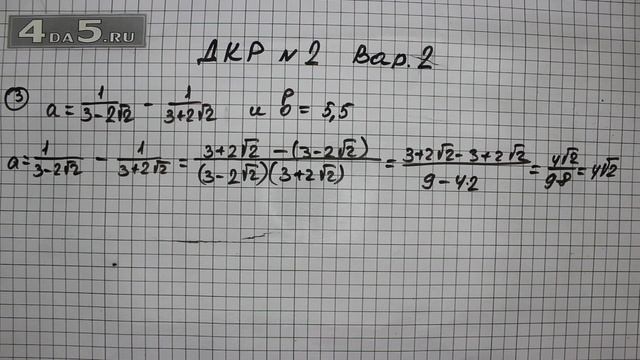 4DA5.RU
ДКР №2 Вар. 2
③ a = 1/(3-2√2) - 1/(3+2√2) и b = 5,5
a = 1/(3-2√2) - 1/(3+2√2) = (3+2√2 - (3-2√2))/((3-2√2)(3+2√2)) = (3+2√2-3+2√2)/(9-4·2) = 4√2/(9-8) = 4√2